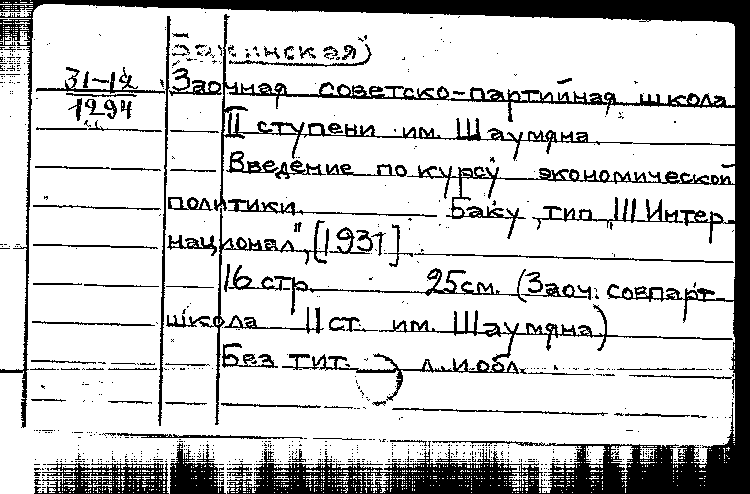 Бакинская)
31-12 Заочная советско-партийная школа
1294 II ступени им. Шаумяна.
Введение по курсу экономической
политики. Баку, тип. „III Интер-
национал", [1931].
16 стр. 25см. (Заоч. совпарт-
школа II ст. им. Шаумяна)
Без тит. л. и обл.